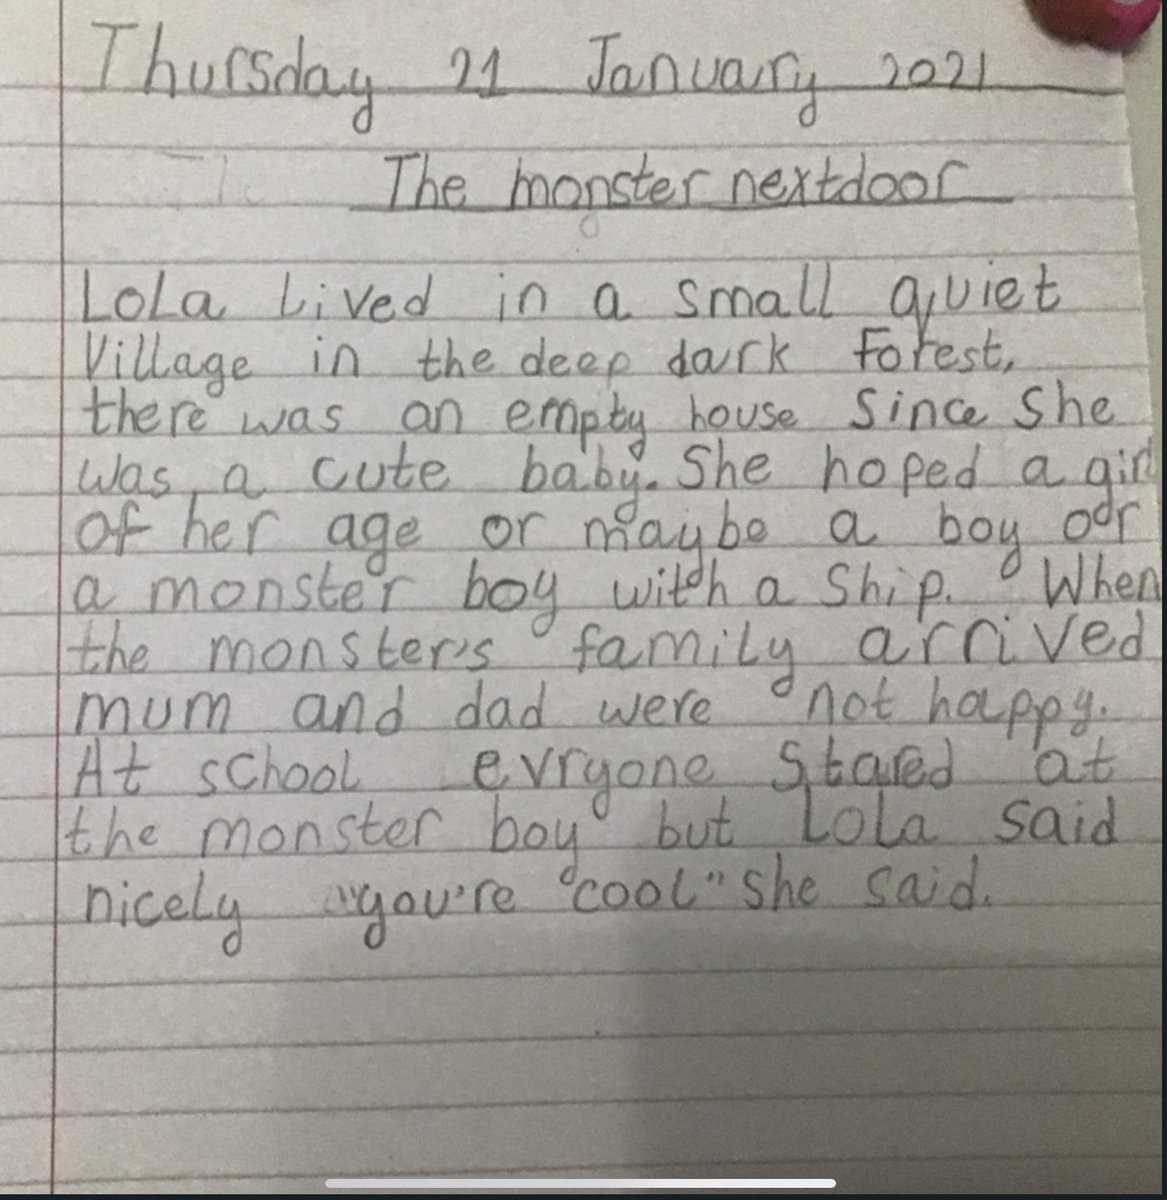 Thursday 21 January 2021
The monster nextdoor
Lola Lived in a small quiet
Village in the deep dark Forest,
there was an empty house Since She
was a cute baby. She hoped a girl
of her age or maybe a boy or
a monster boy with a Ship. When
the monster's family arrived
mum and dad were not happy.
At school evryone Stared at
the monster boy but Lola said
nicely "you're cool" She said.